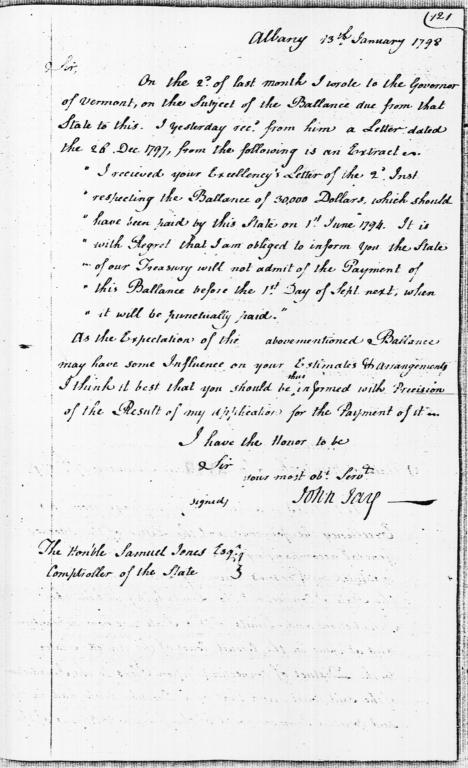 121
Albany 13th January 1798
Sir,
On the 2d. of last month I wrote to the Governor
of Vermont, on the Subject of the Ballance due from that
State to this. I yesterday recd. from him a Letter dated
the 26 Dec 1797, from the following is an Extract
" I recieved your Excellency's Letter of the 2d. Inst
" respecting the Ballance of 30,000 Dollars, which should
" have been paid by this State on 1st June 1794. It is
" with Regret that I am obliged to inform You the State
" of our Treasury will not admit of the Payment of
" this Ballance before the 1st Day of Sept next, when
" it will be punctually paid."
As the Expectation of the abovementioned Ballance
may have some Influence on your Estimates & Arrangements
I think it best that you should be thus informed with Precision
of the Result of my Application for the Payment of it —
I have the Honor to be
Sir
your most obt. Servt.
signed John Jay —
The Honble Samuel Jones Esqr.
Comptroller of the State